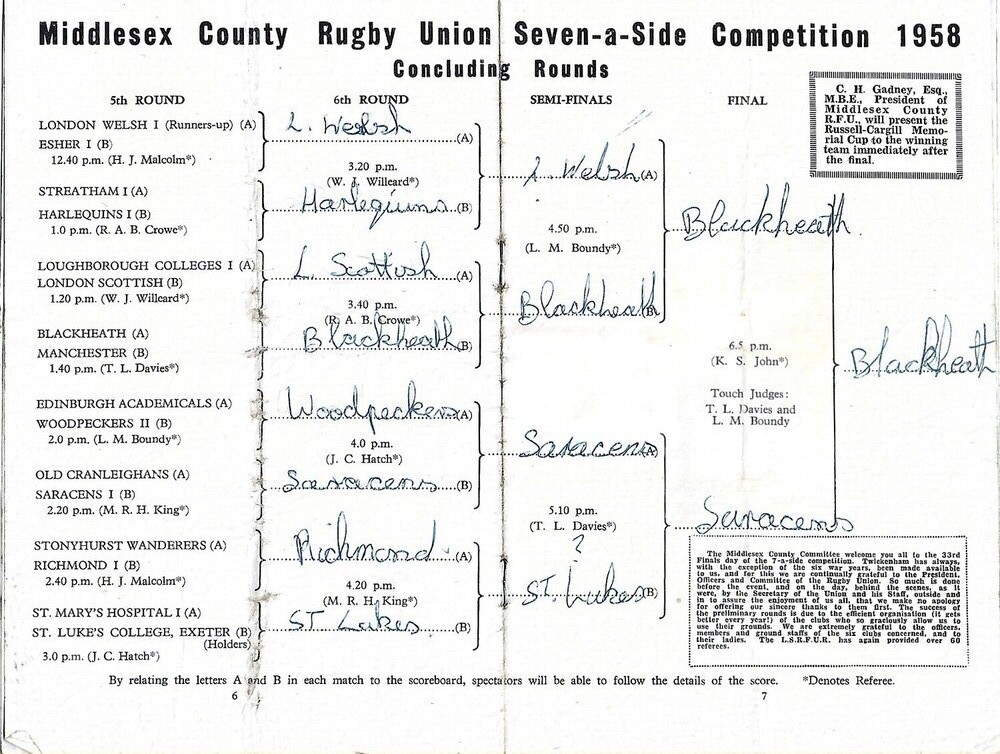 Middlesex County Rugby Union Seven-a-Side Competition 1958
Concluding Rounds
5th ROUND
LONDON WELSH I (Runners-up) (A)
ESHER I (B)
12.40 p.m. (H. J. Malcolm*)
STREATHAM I (A)
HARLEQUINS I (B)
1.0 p.m. (R. A. B. Crowe*)
LOUGHBOROUGH COLLEGES I (A)
LONDON SCOTTISH (B)
1.20 p.m. (W. J. Willcard*)
BLACKHEATH (A)
MANCHESTER (B)
1.40 p.m. (T. L. Davies*)
EDINBURGH ACADEMICALS (A)
WOODPECKERS II (B)
2.0 p.m. (L. M. Boundy*)
OLD CRANLEIGHANS (A)
SARACENS I (B)
2.20 p.m. (M. R. H. King*)
STONYHURST WANDERERS (A)
RICHMOND I (B)
2.40 p.m. (H. J. Malcolm*)
ST. MARY'S HOSPITAL I (A)
ST. LUKE'S COLLEGE, EXETER (B)
(Holders)
3.0 p.m. (J. C. Hatch*)
6th ROUND
L. Welsh (A)
3.20 p.m.
(W. J. Willcard*)
Harlequins (B)
L. Scottish (A)
3.40 p.m.
(R. A. B. Crowe*)
Blackheath (B)
Woodpeckers (A)
4.0 p.m.
(J. C. Hatch*)
Saracens (B)
Richmond (A)
4.20 p.m.
(M. R. H. King*)
ST Lukes (B)
SEMI-FINALS
L. Welsh (A)
4.50 p.m.
(L. M. Boundy*)
Blackheath (B)
Saracens (A)
5.10 p.m.
(T. L. Davies*)
?
ST. Lukes (B)
FINAL
Blackheath
6.5 p.m.
(K. S. John*)
Touch Judges:
T. L. Davies and
L. M. Boundy
Saracens
Blackheath
C. H. Gadney, Esq.,
M.B.E., President of
Middlesex County
R.F.U., will present the
Russell-Cargill Memo-
rial Cup to the winning
team immediately after
the final.
The Middlesex County Committee welcome you all to the 33rd
Finals day of the 7-a-side competition. Twickenham has always,
with the exception of the six war years, been made available
to us, and for this we are continually grateful to the President,
Officers and Committee of the Rugby Union. So much is done
before the event, and on the day, behind the scenes, as it
were, by the Secretary of the Union and his Staff, outside and
in to assure the enjoyment of us all, that we make no apology
for offering our sincere thanks to them first. The success of
the preliminary rounds is due to the efficient organisation (it gets
better every year!) of the clubs who so graciously allow us to
use their grounds. We are extremely grateful to the officers,
members and ground staffs of the six clubs concerned, and to
their ladies. The L.S.R.F.U.R. has again provided over 60
referees.
By relating the letters A and B in each match to the scoreboard, spectators will be able to follow the details of the score. *Denotes Referee.
6
7